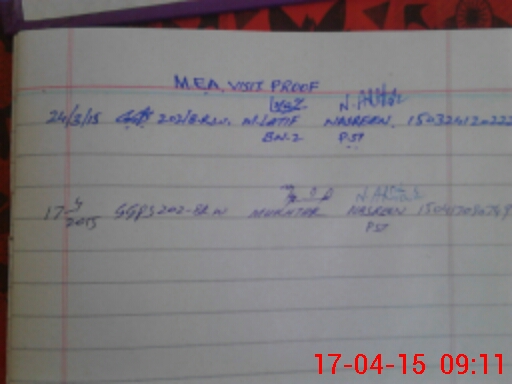 M.E.A. VISIT PROOF
24/3/15 GGPS 202/B.R.W. M.LATIF NASREEN. 150324120222
BN-2 PST
17-4
2015 GGPS 202-BRW MUKHTAR NASREEN
PST
17-04-15 09:11